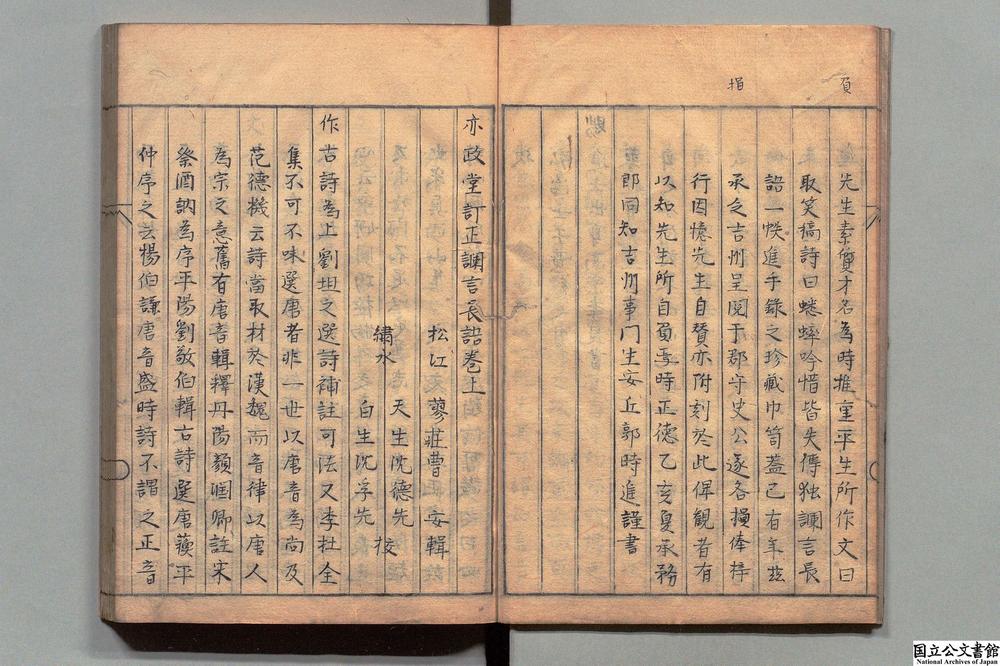 負
捐
先生素負才名為時推重平生所作文曰
取笑稿詩曰蟋蟀吟惜皆失傳独讕言長
語一帙進手錄之珍藏巾笥蓋已有年茲
承乏吉州呈閱于郡守史公遂各損俸梓
行因憶先生自贊亦附刻於此俾觀者有
以知先生所自負云時正德乙亥夏承務
郎同知吉州事門生安丘郭時進謹書
亦政堂訂正讕言長語卷上
松江 蓼莊曹安輯
繡水 天生沈德先
白生沈孚先 校
作古詩為上劉坦之選詩補註可法又李杜全
集不可不味選唐者非一世以唐音為尚及
范德機云詩當取材於漢魏而音律以唐人
為宗之意舊有唐音輯釋丹陽顏潤卿註宋
祭酒訥為序平陽劉敬伯輯古詩選唐蘇平
仲序之云楊伯謙唐音盛時詩不謂之正音
国立公文書館
National Archives of Japan